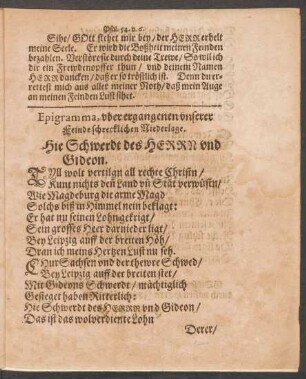 Psal. 54. v. 6.
Sihe/ GOtt stehet mir bey/ der HERR erhelt
meine Seele. Er wird die Boßheit meinen Feinden
bezahlen. Verstöre sie durch deine Trewe/ So wil ich
dir ein Frewdenopffer thun / vnd deinem Namen
HERR dancken/ daß er so tröstlich ist. Denn du er-
rettest mich aus aller meiner Noth/ daß mein Auge
an meinen Feinden Lust sihet.
Epigramma, vber ergangenen vnserer
Feinde schrecklichen Niederlage.
Hie Schwerdt des HERRN vnd
Gideon.
TYll wolt vertilgn all rechte Christn/
Kunt nichts den Land vñ Stät verwüstn/
Wie Magdeburg die arme Magd
Solchs biß in Himmel nein beklagt:
Er hat nu seinen Lohn gekrigt/
Sein grosses Heer darnieder ligt/
Bey Leipzig auff der breiten Höh/
Dran ich meins Hertzen Lust nu seh.
CHur Sachsen vnd der thewre Schwed/
Bey Leipzig auff der breiten stet/
Mit Gideons Schwerdt / mächtiglich
Gesieget haben Ritterlich:
Hie Schwerdt des HERRN vnd Gideon/
Das ist das wolverdiente Lohn
Derer/